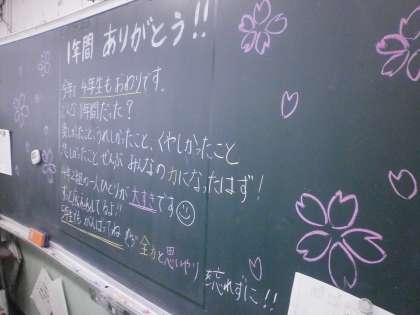 1年間 ありがとう!!
今日で 4年生も おわりです。
どんな 1年間だった?
楽しかったこと、うれしかったこと、くやしかったこと
悲しかったこと ぜんぶ みんなの 力に なったはず!
4年2組の 一人ひとりが 大すきです
ずっと 応えんしてるよ!!
5年生も がんばってね 全力と思いやり 忘れずに!!